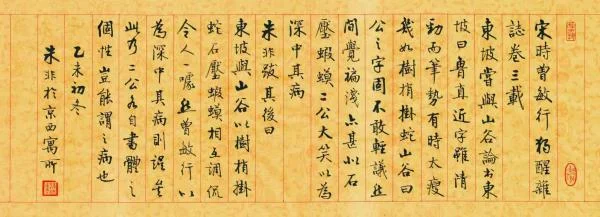 宋時曾敏行獨醒雜
誌卷三載
東坡嘗與山谷論書東
坡曰魯直近字雖清
勁而筆勢有時太瘦
幾如樹梢掛蛇山谷曰
公之字固不敢輕議然
間覺褊淺亦甚似石
壓蝦蟆二公大笑以為
深中其病
朱非跋其後曰
東坡與山谷以樹梢掛
蛇石壓蝦蟆相互調侃
令人一噱然曾敏行以
為深中其病則謬矣
此乃二公各自書體之
個性豈能謂之病也
乙未初冬
朱非於京西寓所